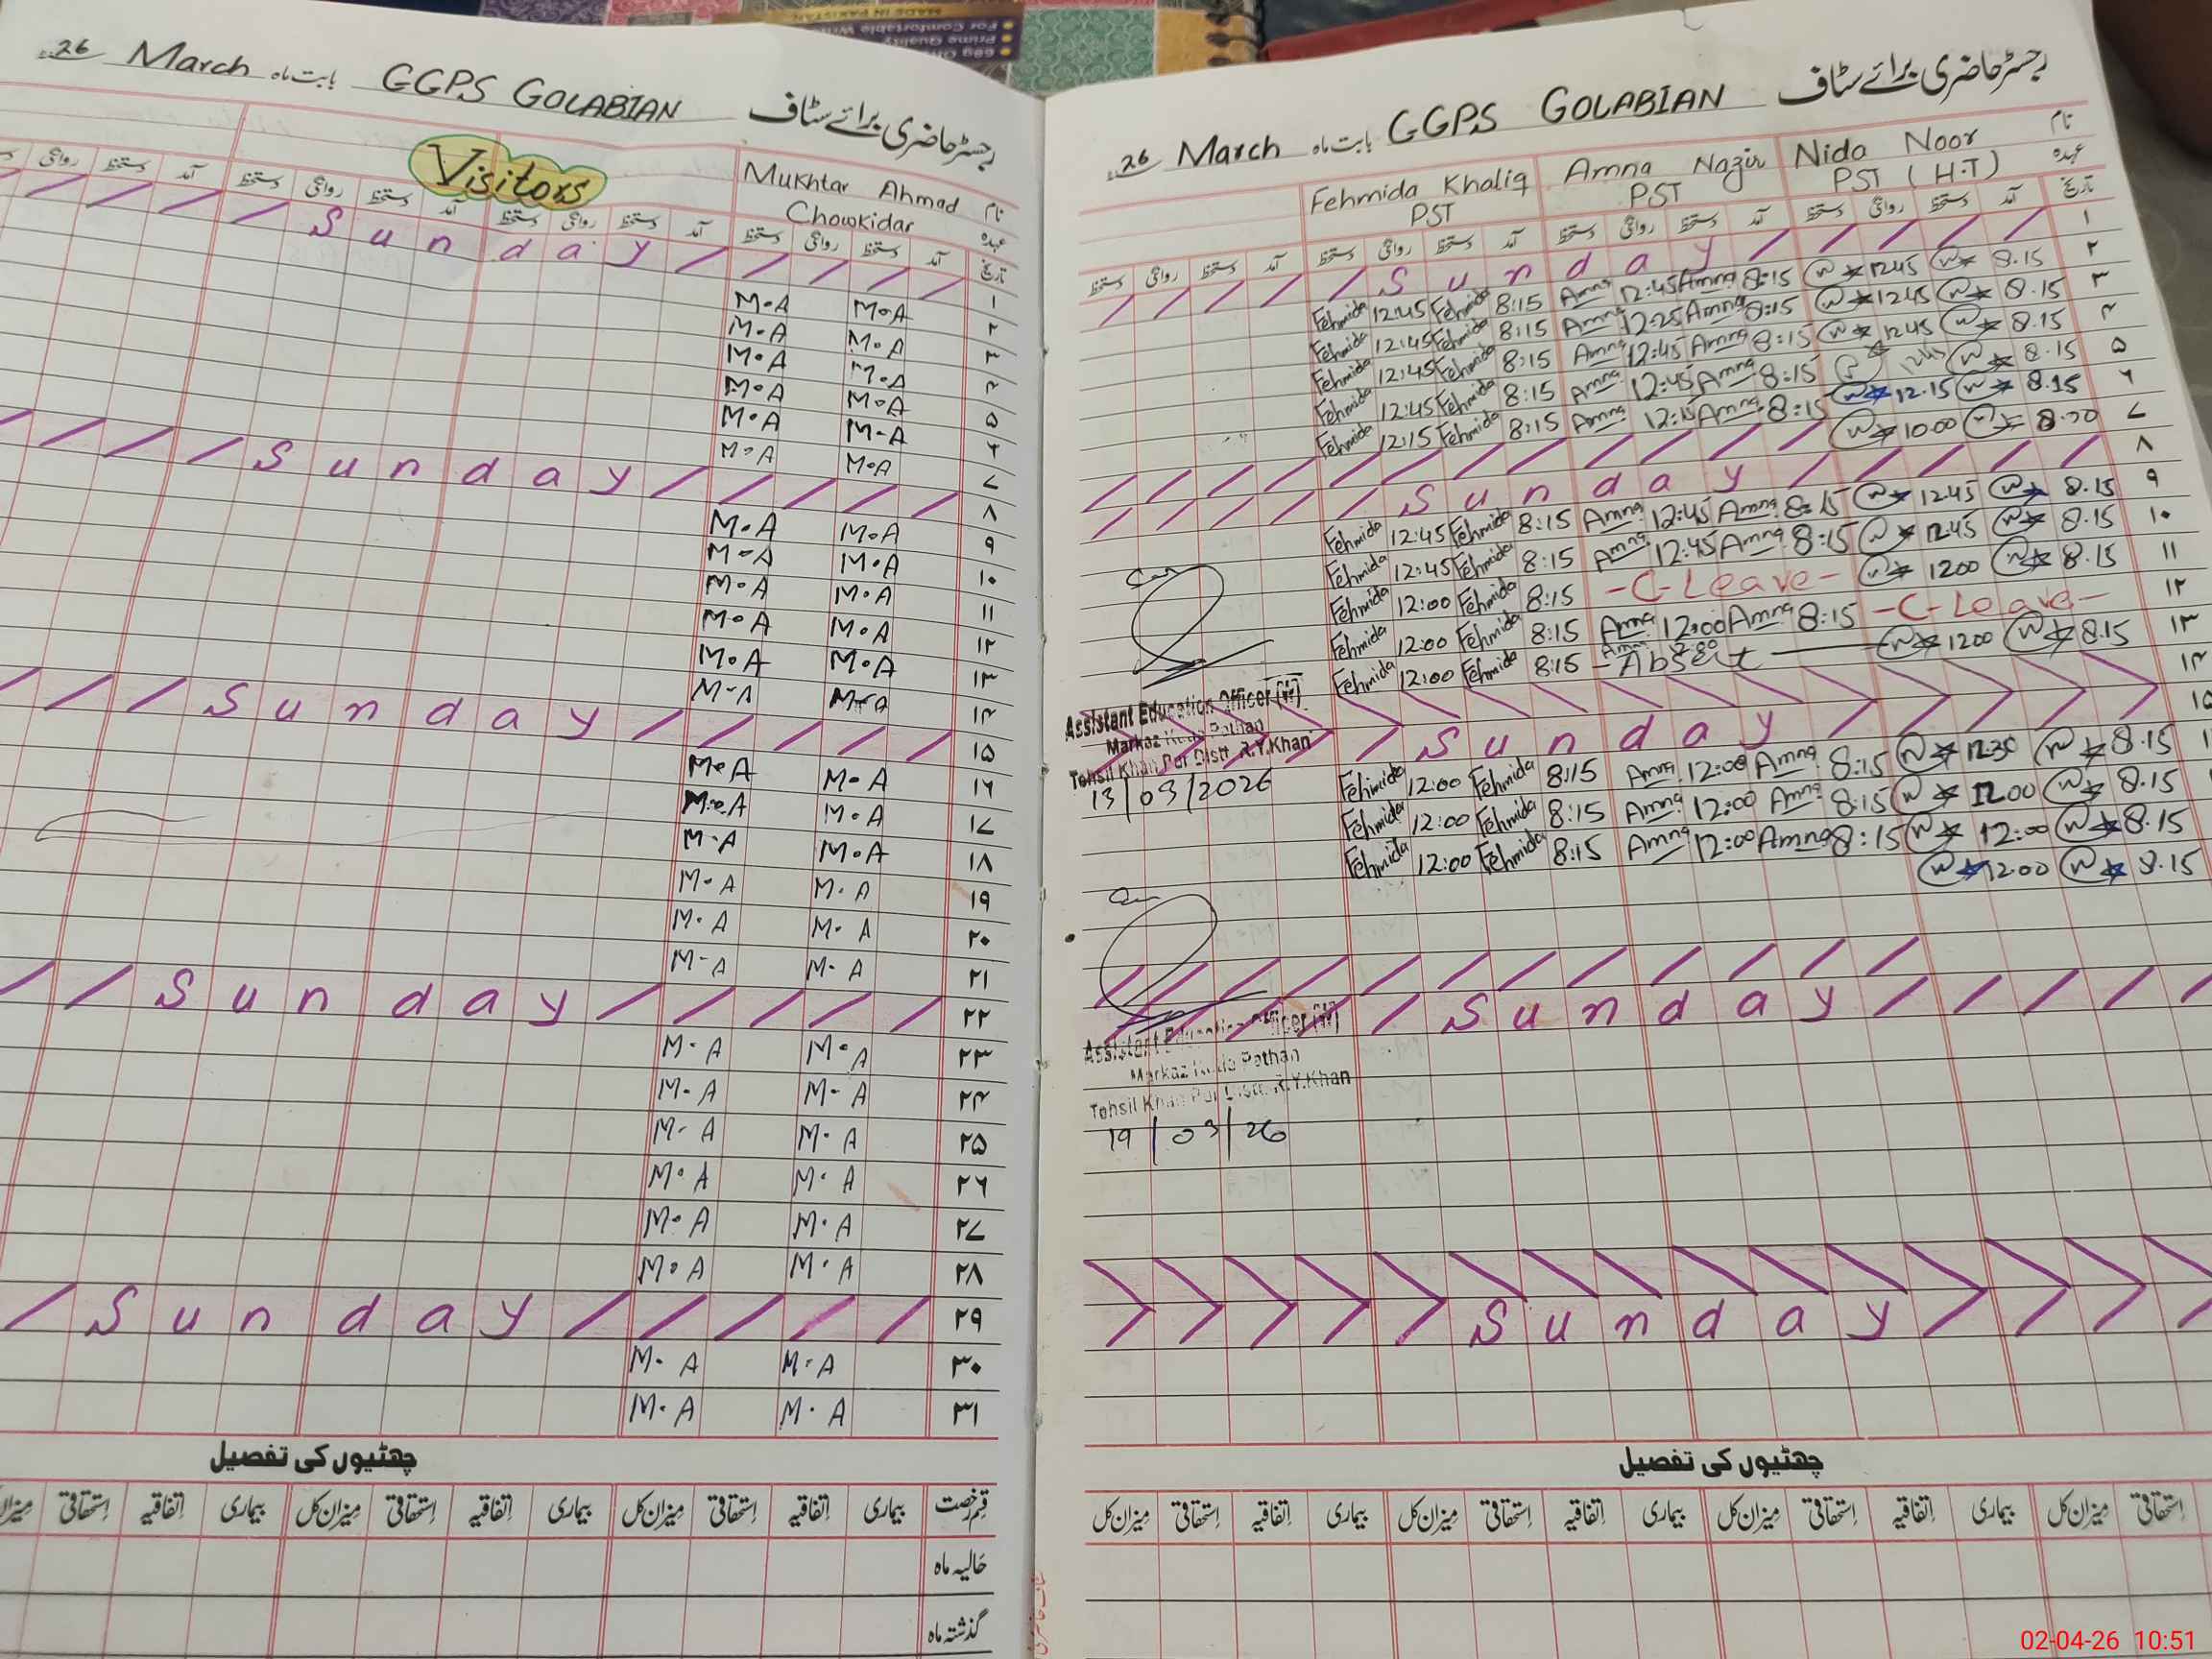 26 March بابت ماہ GGPS GOLABIAN رجسٹر حاضری برائے سٹاف
Visitors
Mukhtar Ahmad نام
Chowkidar عہدہ
دستخط روانگی دستخط آمد دستخط روانگی دستخط آمد دستخط روانگی دستخط آمد تاریخ
Sunday ۱
M.A M.A ۲
M.A M.A ۳
M.A M.A ۴
M.A M.A ۵
M.A M.A ۶
M.A M.A ۷
Sunday ۸
M.A M.A ۹
M.A M.A ۱۰
M.A M.A ۱۱
M.A M.A ۱۲
M.A M.A ۱۳
M-A M-A ۱۴
Sunday ۱۵
M.A M.A ۱۶
M.A M.A ۱۷
M.A M.A ۱۸
M.A M.A ۱۹
M.A M.A ۲۰
M-A M.A ۲۱
Sunday ۲۲
M.A M.A ۲۳
M.A M-A ۲۴
M-A M.A ۲۵
M.A M.A ۲۶
M.A M.A ۲۷
M.A M.A ۲۸
Sunday ۲۹
M.A M.A ۳۰
M.A M.A ۳۱
چھٹیوں کی تفصیل
اِستحقاقی اِتفاقیہ بیماری میزان کل اِستحقاقی اِتفاقیہ بیماری میزان کل اِستحقاقی اِتفاقیہ بیماری قسم رخصت
حالیہ ماہ
گذشتہ ماہ
26 March بابت ماہ GGPS GOLABIAN رجسٹر حاضری برائے سٹاف
Fehmida Khaliq Amna Nazir Nida Noor نام
PST PST PST (H.T) عہدہ
دستخط روانگی دستخط آمد دستخط روانگی دستخط آمد دستخط روانگی دستخط آمد دستخط روانگی دستخط آمد تاریخ
Sunday ۱
Fehmida 12:45 Fehmida 8:15 Amna 12:45 Amna 8:15 12.45 8.15 ۲
Fehmida 12:45 Fehmida 8:15 Amna 12:25 Amna 8:15 12.45 8.15 ۳
Fehmida 12:45 Fehmida 8:15 Amna 12:45 Amna 8:15 12.45 8.15 ۴
Fehmida 12:45 Fehmida 8:15 Amna 12:45 Amna 8:15 8.15 ۵
Fehmida 12:15 Fehmida 8:15 Amna 12:15 Amna 8:15 12.15 8.15 ۶
10.00 ۷
Sunday ۸
Fehmida 12:45 Fehmida 8:15 Amna 12:45 Amna 8:15 12.45 8.15 ۹
Fehmida 12:45 Fehmida 8:15 Amna 12:45 Amna 8:15 12.45 8.15 ۱۰
Fehmida 12:00 Fehmida 8:15 -C-Leave- 1200 8.15 ۱۱
Fehmida 12:00 Fehmida 8:15 Amna 12:00 Amna 8:15 -C-Leave- ۱۲
Fehmida 12:00 Fehmida 8:15 Absent 1200 8.15 ۱۳
۱۴
Sunday ۱۵
Fehmida 12:00 Fehmida 8:15 Amna 12:00 Amna 8:15 12.30 8.15
Fehmida 12:00 Fehmida 8:15 Amna 12:00 Amna 8:15 12.00 8.15
Fehmida 12:00 Fehmida 8:15 Amna 12:00 Amna 8:15 12:00 8.15
12.00 8.15
Assistant Education Officer (W)
Markaz Kota Pathan
Tehsil Khan Pur Distt. R.Y.Khan
13/03/2026
Sunday
Assistant Education Officer (W)
Markaz Kota Pathan
Tehsil Khan Pur Distt. R.Y.Khan
19/03/26
Sunday
چھٹیوں کی تفصیل
میزان کل اِستحقاقی اِتفاقیہ بیماری میزان کل اِستحقاقی اِتفاقیہ بیماری میزان کل اِستحقاقی اِتفاقیہ بیماری میزان کل اِستحقاقی
02-04-26 10:51